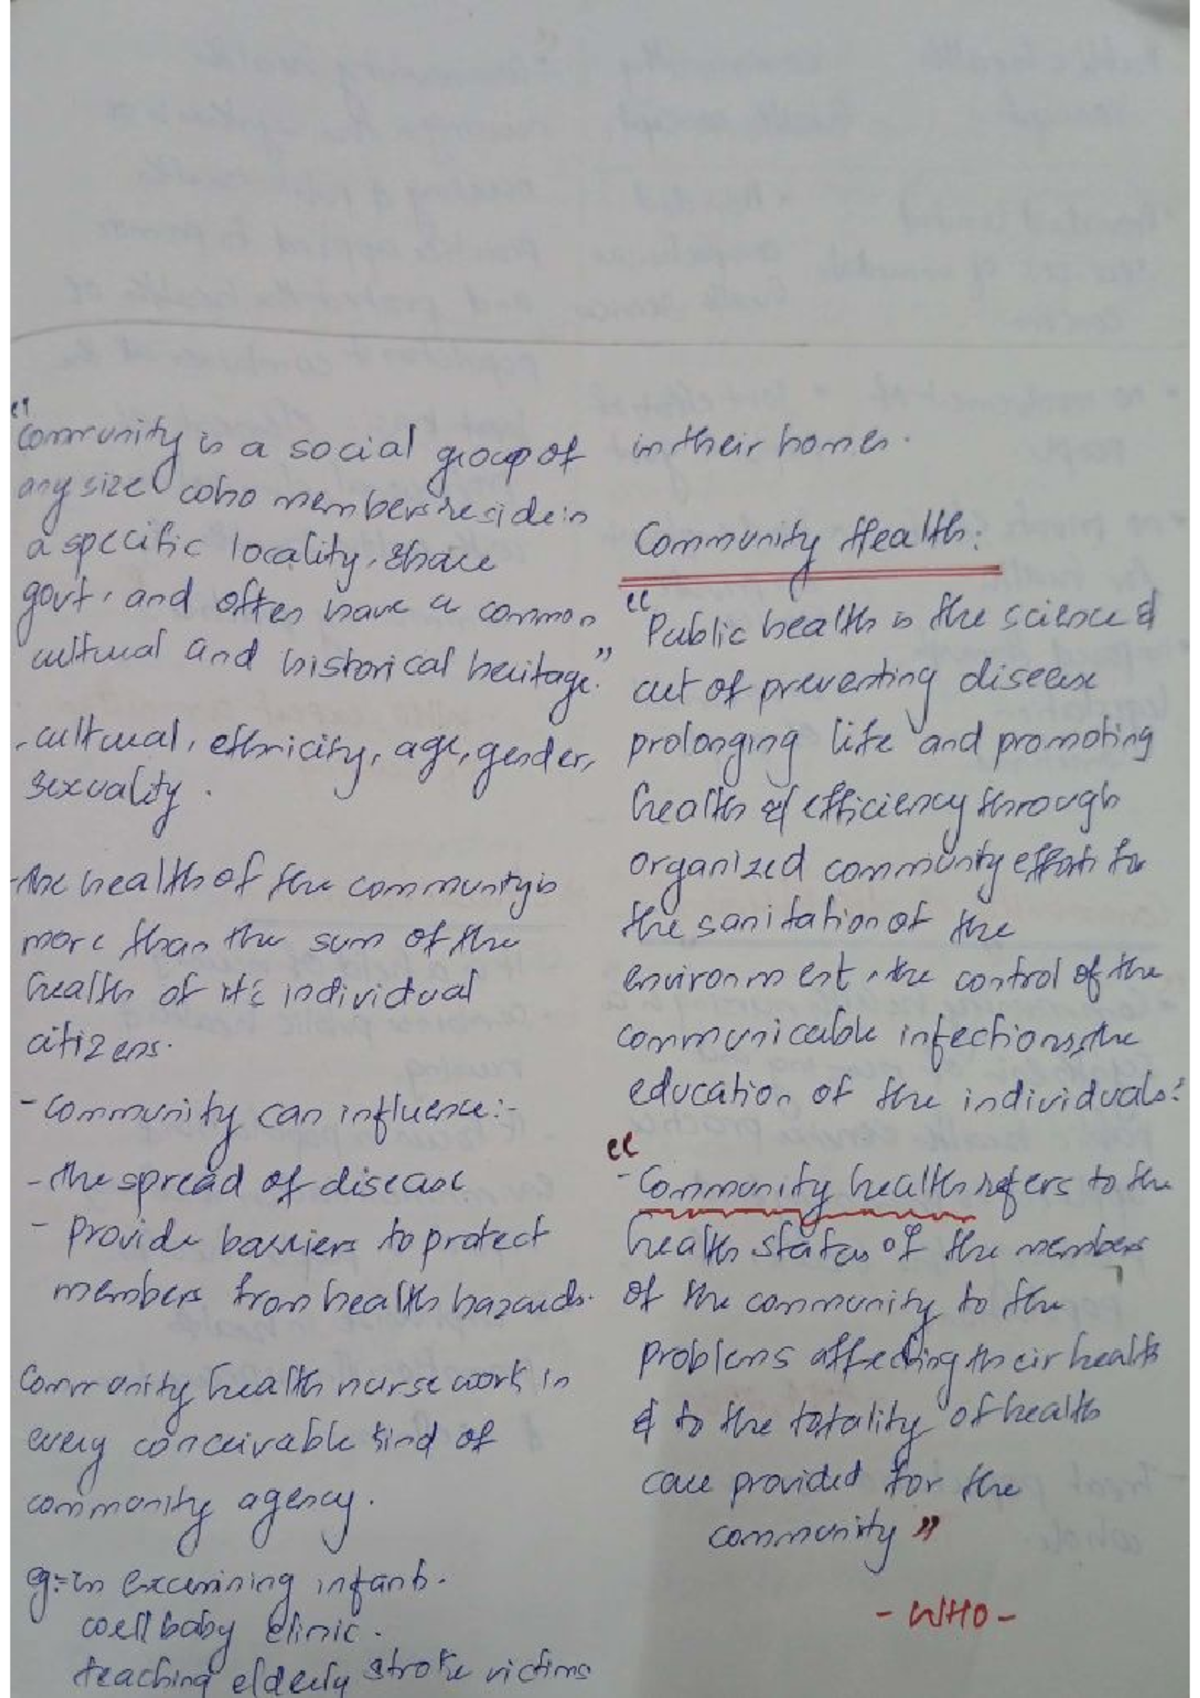 "Community is a social group of
any size who members reside in
a specific locality, share
govt, and often have a common
cultural and historical heritage."
. cultural, ethnicity, age, gender,
sexuality.
- the health of the community is
more than the sum of the
health of its individual
citizens.
- Community can influence:-
- the spread of disease
- provide barriers to protect
members from health hazards.
Community health nurse work in
every conceivable kind of
community agency.
eg:- in examining infants.
well baby clinic.
teaching elderly stroke victims
in their homes.
Community Health:
"Public health is the science &
art of preventing disease
prolonging life and promoting
health & efficiency through
organized community effort for
the sanitation of the
environment, the control of the
communicable infections, the
education of the individuals."
"- Community health refers to the
health status of the members
of the community to the
problems affecting their health
& to the totality of health
care provided for the
community"
- WHO -